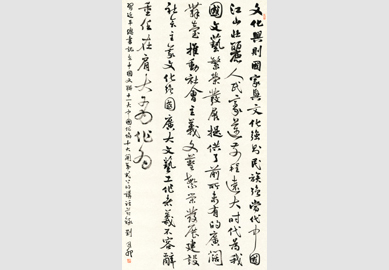 文化興則國家興文化強則民族強當代中國
江山壯麗人民豪邁前程遠大時代為我
國文藝繁榮發展提供了前所未有的廣闊
舞臺推動社會主義文藝繁榮發展建設
社會主義文化強國廣大文藝工作者義不容辭
重任在肩大有作為
習近平總書記在中國文聯十一大中國作協十大開幕式上的講話節錄